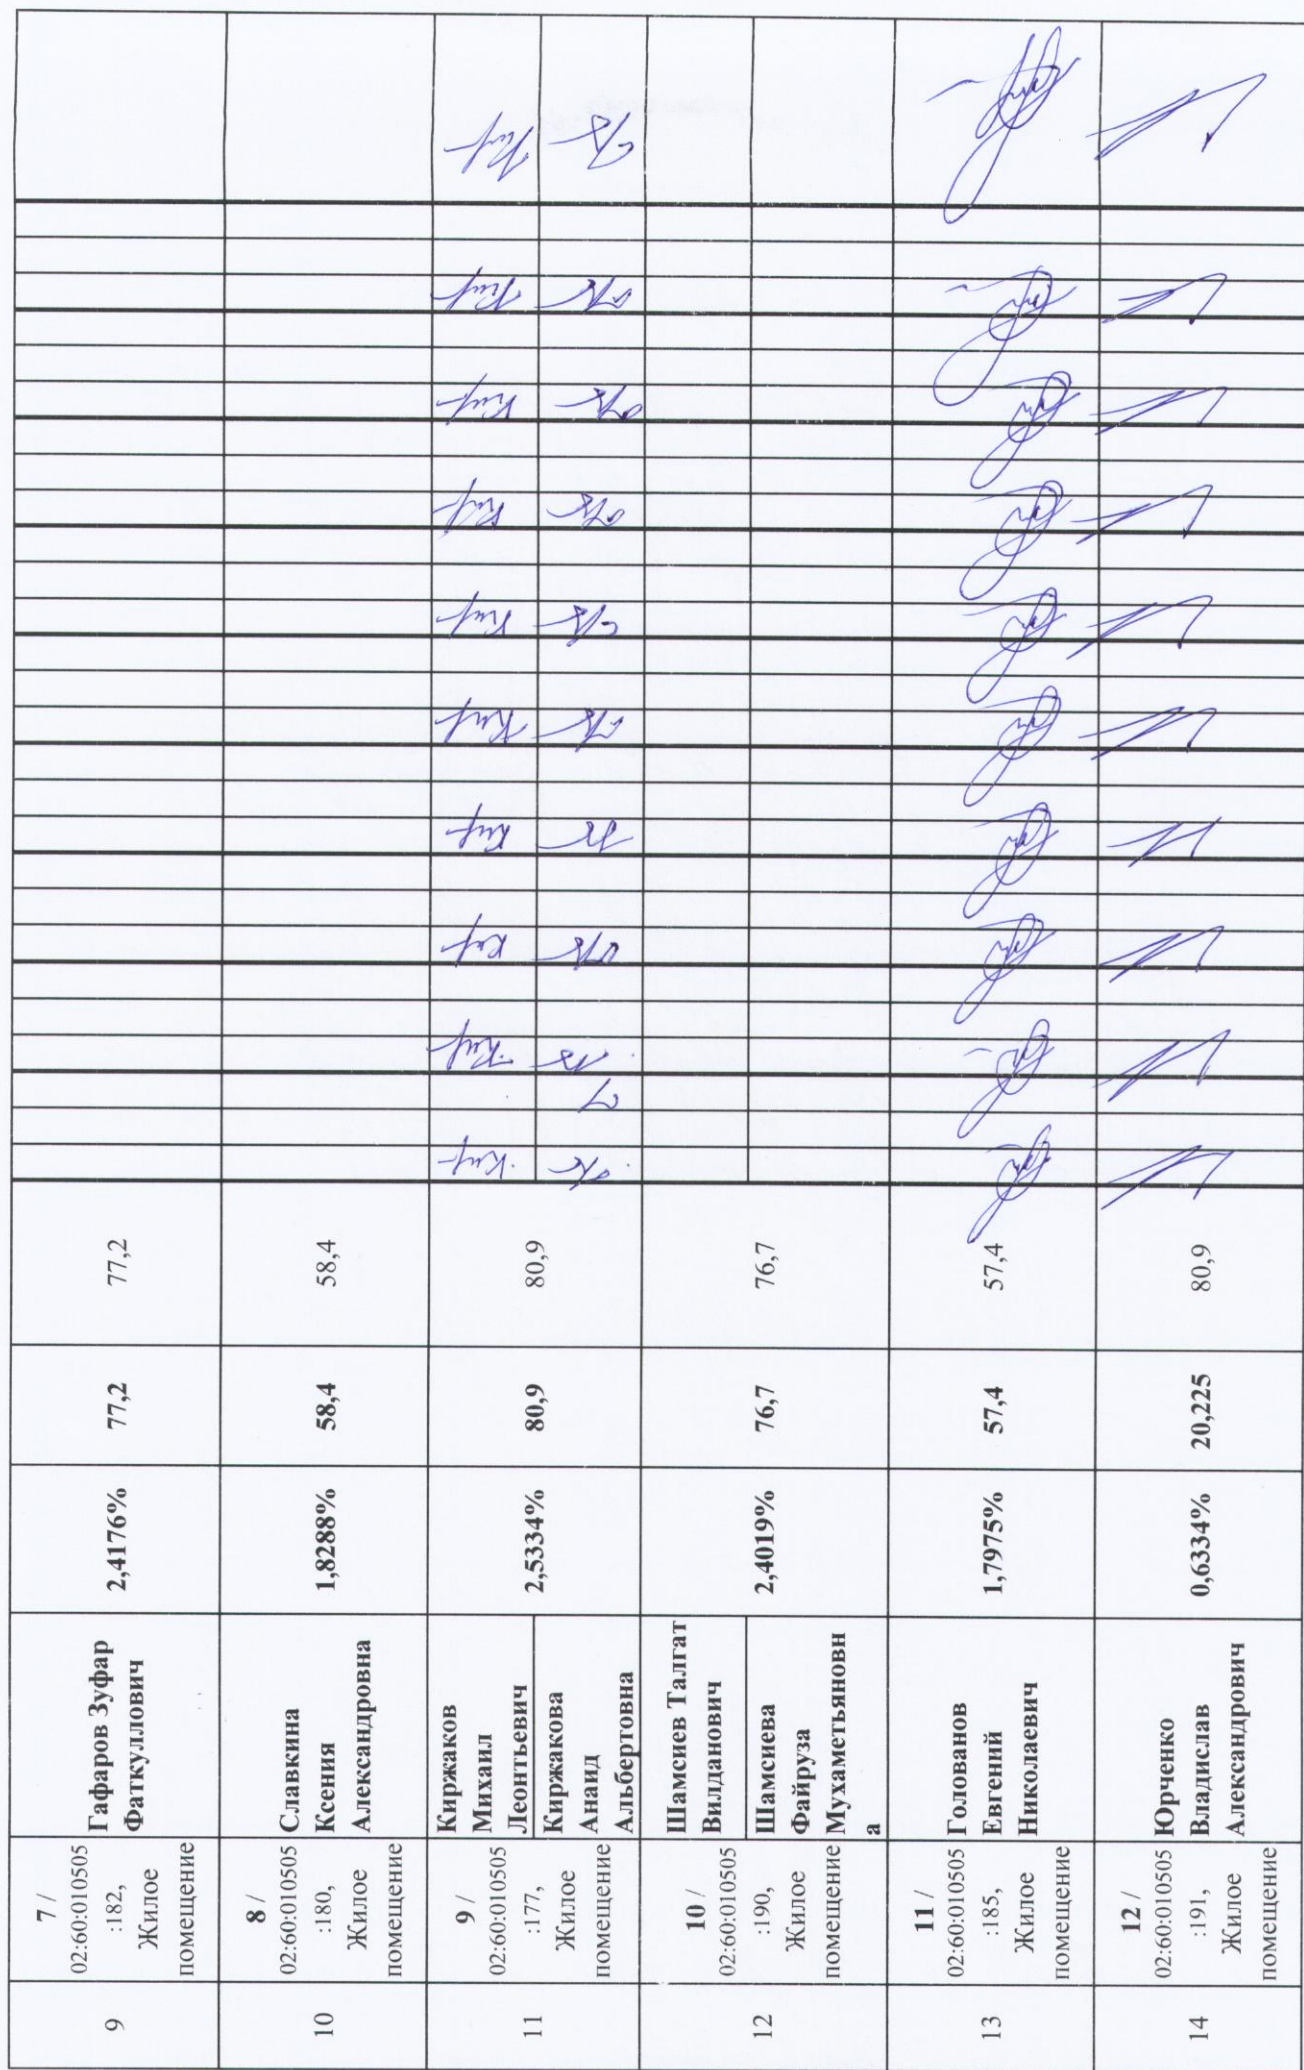 9
7 /
02:60:010505
:182,
Жилое
помещение
Гафаров Зуфар
Фаткуллович
2,4176%
77,2
77,2
10
8 /
02:60:010505
:180,
Жилое
помещение
Славкина
Ксения
Александровна
1,8288%
58,4
58,4
11
9 /
02:60:010505
:177,
Жилое
помещение
Киржаков
Михаил
Леонтьевич
Киржакова
Анаид
Альбертовна
2,5334%
80,9
80,9
12
10 /
02:60:010505
:190,
Жилое
помещение
Шамсиев Талгат
Вилданович
Шамсиева
Файруза
Мухаметьяновн
а
2,4019%
76,7
76,7
13
11 /
02:60:010505
:185,
Жилое
помещение
Голованов
Евгений
Николаевич
1,7975%
57,4
57,4
14
12 /
02:60:010505
:191,
Жилое
помещение
Юрченко
Владислав
Александрович
0,6334%
20,225
80,9